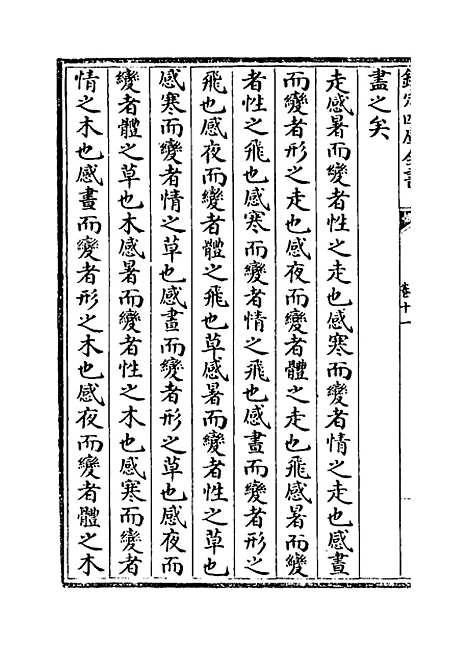 欽定四庫全書
卷十一
盡之矣
走感暑而變者性之走也感寒而變者情之走也感晝
而變者形之走也感夜而變者體之走也飛感暑而變
者性之飛也感寒而變者情之飛也感晝而變者形之
飛也感夜而變者體之飛也草感暑而變者性之草也
感寒而變者情之草也感晝而變者形之草也感夜而
變者體之草也木感暑而變者性之木也感寒而變者
情之木也感晝而變者形之木也感夜而變者體之木